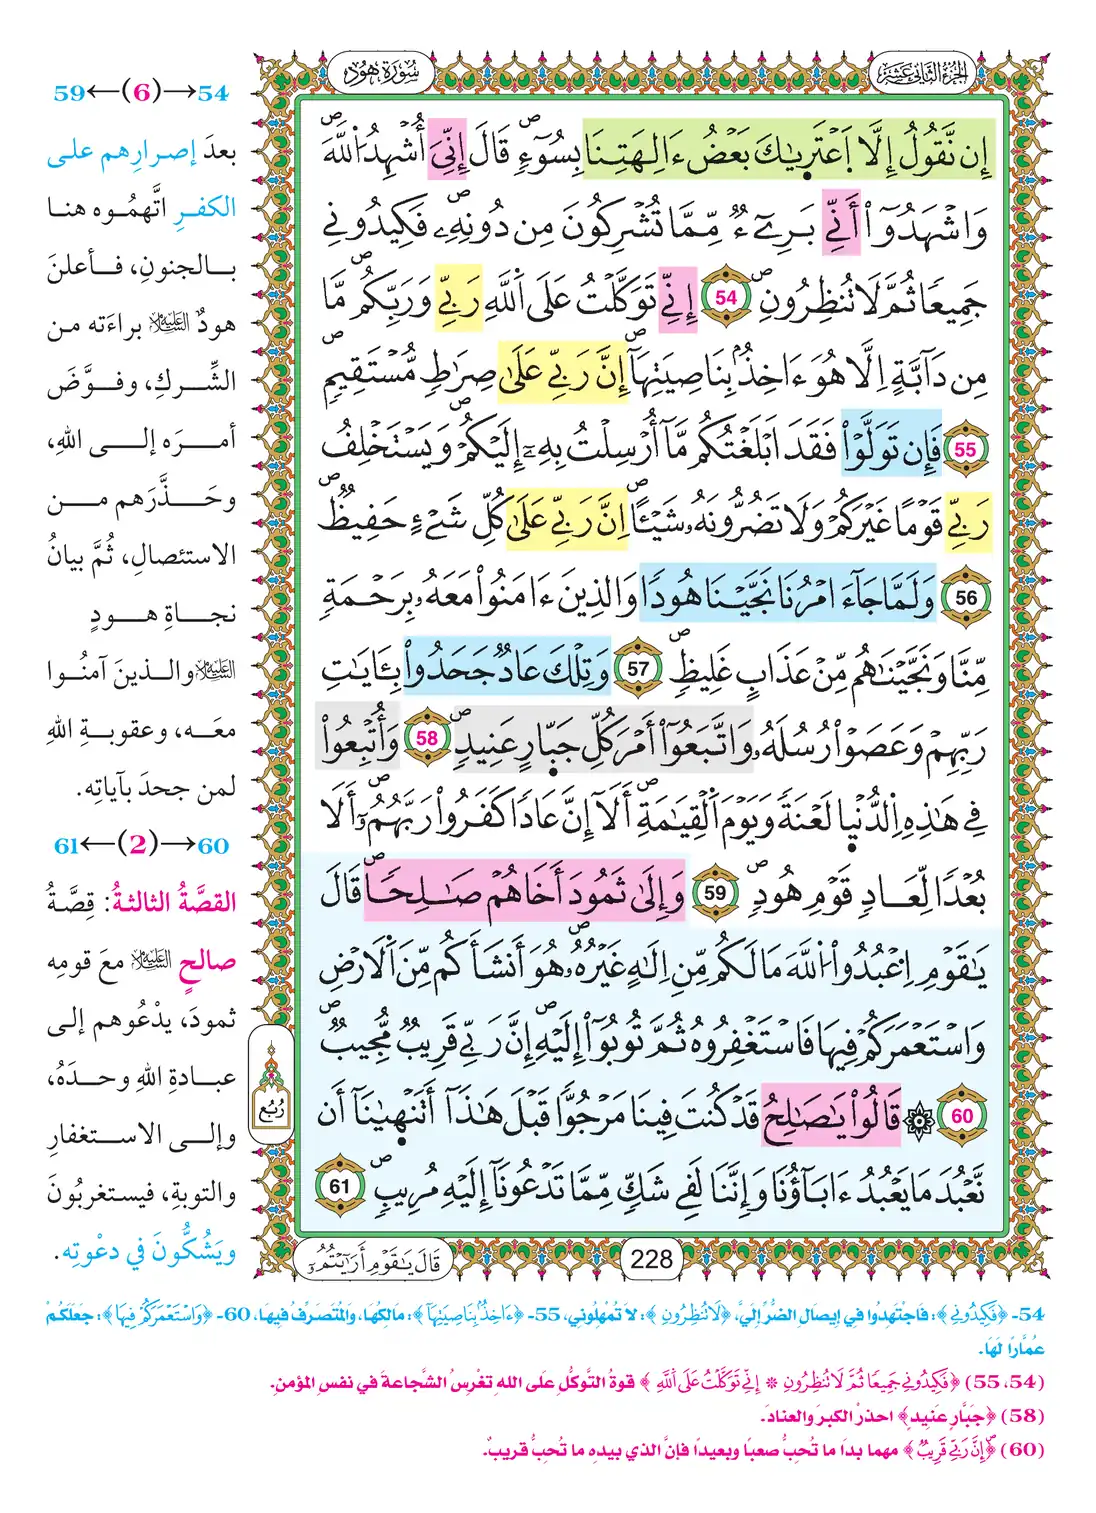 سُورَةُ هُودٍ
الجُزْءُ الثَّانِيَ عَشَرَ
إِن نَّقُولُ إِلَّا اَعْتَرَىٰكَ بَعْضُ ءَالِهَتِنَا بِسُوٓءٖ قَالَ إِنِّيَ أُشْهِدُ اللَّهَ
وَاشْهَدُوٓاْ أَنِّي بَرِيٓءٞ مِّمَّا تُشْرِكُونَ مِن دُونِهِۦ فَكِيدُونِي
جَمِيعٗا ثُمَّ لَا تُنظِرُونِ 54 إِنِّي تَوَكَّلْتُ عَلَى اَللَّهِ رَبِّي وَرَبِّكُم مَّا
مِن دَآبَّةٍ اِلَّا هُوَ ءَاخِذُۢ بِنَاصِيَتِهَآ إِنَّ رَبِّي عَلَىٰ صِرَٰطٖ مُّسْتَقِيمٖ
55 فَإِن تَوَلَّوْاْ فَقَدَ اَبْلَغْتُكُم مَّآ أُرْسِلْتُ بِهِۦٓ إِلَيْكُمْ وَيَسْتَخْلِفُ
رَبِّي قَوْمًا غَيْرَكُمْ وَلَا تَضُرُّونَهُۥ شَيْـًٔا اِنَّ رَبِّي عَلَىٰ كُلِّ شَيْءٍ حَفِيظٞ
56 وَلَمَّا جَآءَ امْرُنَا نَجَّيْنَا هُودٗا وَالذِينَ ءَامَنُواْ مَعَهُۥ بِرَحْمَةٖ
مِّنَّا وَنَجَّيْنَٰهُم مِّنْ عَذَابٍ غَلِيظٖ 57 وَتِلْكَ عَادٞ جَحَدُواْ بِـَٔايَٰتِ
رَبِّهِمْ وَعَصَوْاْ رُسُلَهُۥ وَاتَّبَعُوٓاْ أَمْرَ كُلِّ جَبّٖارٍ عَنِيدٖ 58 وَأُتْبِعُواْ
فِي هَٰذِهِ اِلدُّنْيٖا لَعْنَةٗ وَيَوْمَ اَلْقِيَٰمَةِ أَلَآ إِنَّ عَادٗا كَفَرُواْ رَبَّهُمُۥٓ أَلَا
بُعْدٗا لِّعَادٖ قَوْمِ هُودٖ 59 وَإِلَىٰ ثَمُودَ أَخَاهُمْ صَٰلِحٗا قَالَ
يَٰقَوْمِ اِعْبُدُواْ اُللَّهَ مَا لَكُم مِّنِ اِلَٰهٍ غَيْرُهُۥ هُوَ أَنشَأَكُم مِّنَ اَلَارْضِ
وَاسْتَعْمَرَكُمْ فِيهَا فَاسْتَغْفِرُوهُ ثُمَّ تُوبُوٓاْ إِلَيْهِ إِنَّ رَبِّي قَرِيبٞ مُّجِيبٞ
60 ۞ قَالُواْ يَٰصَٰلِحُ قَدْ كُنتَ فِينَا مَرْجُوّٗا قَبْلَ هَٰذَآ أَتَنْهٖىٰنَآ أَن
نَّعْبُدَ مَا يَعْبُدُ ءَابَآؤُنَا وَإِنَّنَا لَفِي شَكّٖ مِّمَّا تَدْعُونَآ إِلَيْهِ مُرِيبٖ 61
قَالَ يَٰقَوْمِ أَرَٰٓيْتُمُۥٓ
228
رُبُع
59←(6)→54
بعدَ إصرارِهم على
الكفرِ اتَّهمُوه هنا
بالجنونِ، فأعلنَ
هودٌ عليه السلام براءَته من
الشِّركِ، وفوَّضَ
أمرَه إلى اللهِ،
وحذَّرَهم من
الاستئصالِ، ثُمَّ بيانُ
نجاةِ هودٍ
عليه السلام والذينَ آمنُوا
معَه، وعقوبةِ اللهِ
لمن جحدَ بآياتِه.
61←(2)→60
القصَّةُ الثالثةُ: قِصَّةُ
صالحٍ عليه السلام معَ قومِه
ثمودَ، يدْعُوهم إلى
عبادةِ اللهِ وحدَهُ،
وإلى الاستغفارِ
والتوبةِ، فيستغربُونَ
ويَشُكُّونَ في دعْوتِه.
54- ﴿فَكِيدُونِي﴾: فَاجْتَهِدُوا فِي إِيصَالِ الضُّرِّ إِلَيَّ، ﴿لَا تُنظِرُونِ﴾: لا تُمْهِلُونِي، 55- ﴿ءَاخِذُۢ بِنَاصِيَتِهَآ﴾: مَالِكُهَا، وَالْمُتَصَرِّفُ فِيهَا، 60- ﴿وَاسْتَعْمَرَكُمْ فِيهَا﴾: جَعَلَكُمْ
عُمَّارًا لَهَا.
(54، 55) ﴿فَكِيدُونِي جَمِيعٗا ثُمَّ لَا تُنظِرُونِ * إِنِّي تَوَكَّلْتُ عَلَى اَللَّهِ﴾ قوةُ التَّوكلِ على اللهِ تغْرِسُ الشَّجاعةَ في نفسِ المؤمنِ.
(58) ﴿جَبّٖارٍ عَنِيدٖ﴾ احذرْ الكبرَ والعنادَ.
(60) ﴿إِنَّ رَبِّي قَرِيبٞ﴾ مهما بدَا ما تُحبُّ صعبًا وبعيدًا فإنَّ الذي بيدِه ما تُحبُّ قريبٌ.